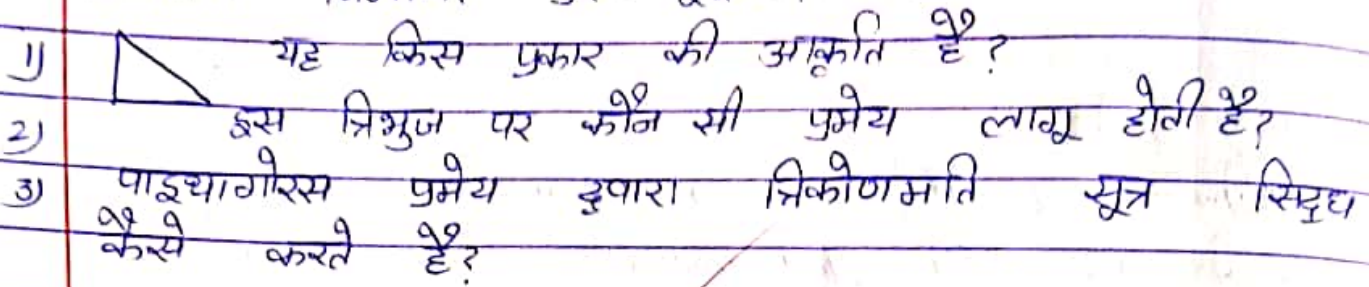 1) यह किस प्रकार की आकृति है?
2) इस त्रिभुज पर कौन सी प्रमेय लागू होती है?
3) पाइथागोरस प्रमेय द्वारा त्रिकोणमति सूत्र सिद्ध
कैसे करते है?